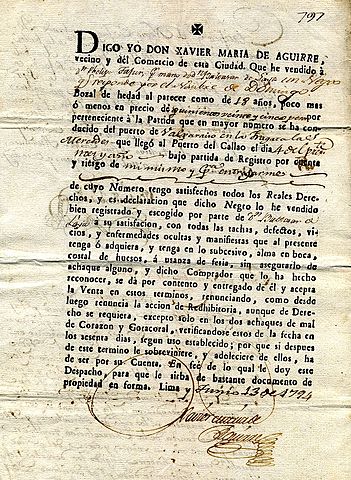 797
DIGO YO DON XAVIER MARIA DE AGUIRRE,
vecino y del Comercio de esta Ciudad. Que he vendido à
un Negro
q responde por el Nombre de Domingo
Bozal de hedad al parecer como de 18 años, poco mas
ó menos en precio de quinientos veinte y cinco pesos
perteneciente à la Partida que en mayor número se ha con-
ducido del puerto de Valparaiso en la Fragata la S.
Mercedes que llegó al Puerto del Callao el dia 4 del
mes y año bajo partida de Registro por cuenta
y riesgo de mi mismo y
de cuyo Número tengo satisfechos todos los Reales Dere-
chos, y es declaracion que dicho Negro lo he vendido
bien registrado y escogido por parte de
a su satisfacion, con todas las tachas, defectos, vi-
cios, y enfermedades ocultas y manifiestas que al presente
tenga ò adquiera, y tenga en lo subcesivo, alma en boca,
costal de huesos, á usanza de feria, sin asegurarlo de
achaque alguno, y dicho Comprador que lo ha hecho
reconocer, se dá por contento y entregado de él y acepta
la Venta en estos terminos, renunciando, como desde
luego renuncia la accion de Redhibitoria, aunque de Dere-
cho se requiera, excepto solo en los achaques de mal
de Corazon y Gotacoral, verificandose estos de la fecha en
los sesenta dias, segun uso establecido; por que si despues
de este termino le sobreviniere, y adoleciere de ellos, ha
de ser por su Cuenta. En fee de lo qual le doy este
Despacho para que le sirba de bastante documento de
propiedad en forma. Lima y Junio 13 de 1794
Xavier Maria de
Aguirre